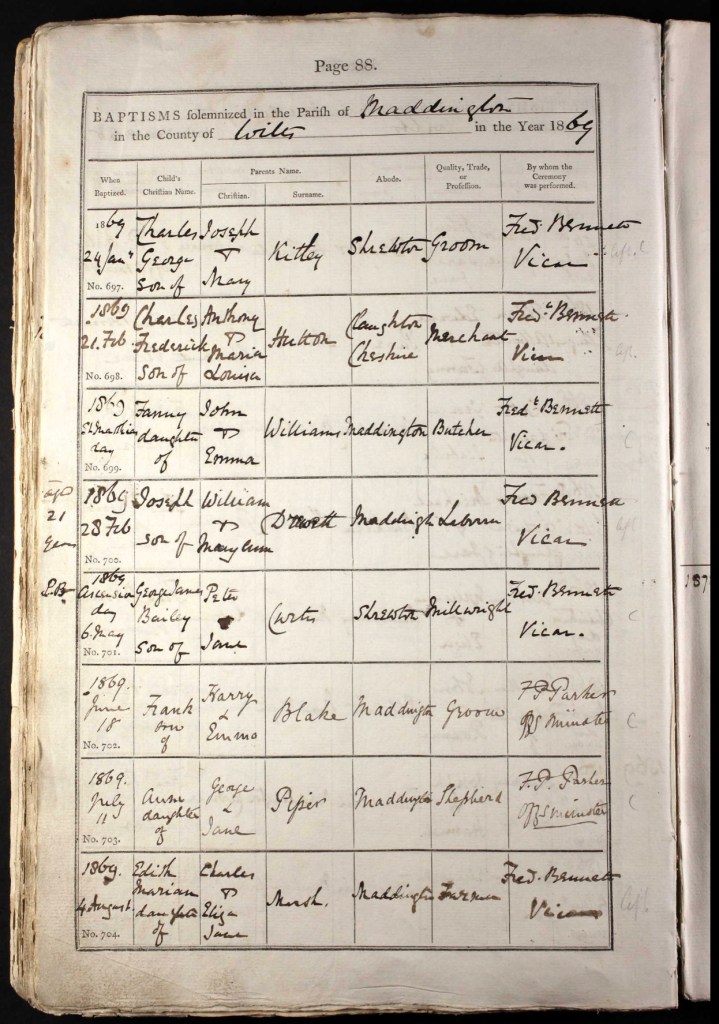 Page 88.
BAPTISMS solemnized in the Parish of Maddington
in the County of Wilts in the Year 1869
When Baptized. Child's Christian Name. Parents Name. Abode. Quality, Trade, or Profession. By whom the Ceremony was performed.
Christian. Surname.
1869 Charles Joseph Fred. Bennett
24 Jany George & Kitley Shrewton Groom Vicar
No. 697. son of Mary
1869 Charles Anthony Fredk. Bennett
21. Feb Frederick & Maria Hutton Claughton Cheshire Merchant Vicar
No. 698. son of Louisa
1869 Fanny John Fredk Bennett
St Mathias day daughter & Williams Maddington Butcher Vicar.
No. 699. of Emma
aged 21 years
1869 Joseph William Fred Bennett
28 Feb son of & Maddingto Laborer Vicar
No. 700. Mary Ann
P.B.
1869 George James Peter Fred. Bennett
Ascension day Bailey & Curtis Shrewton Millwright Vicar.
6. May son of Jane
No. 701.
1869. Harry F P Parker
June Frank & Blake Maddington Groom Offg Minister
18 son of Emma
No. 702.
1869. George F. P. Parker
July Anna & Piper Maddington Shepherd Offg Minister
11 daughter of Jane
No. 703.
1869. Edith Charles Fred. Bennett
4 August Marian & Marsh. Maddington Vicar
No. 704. daughter of Eliza Jane
187